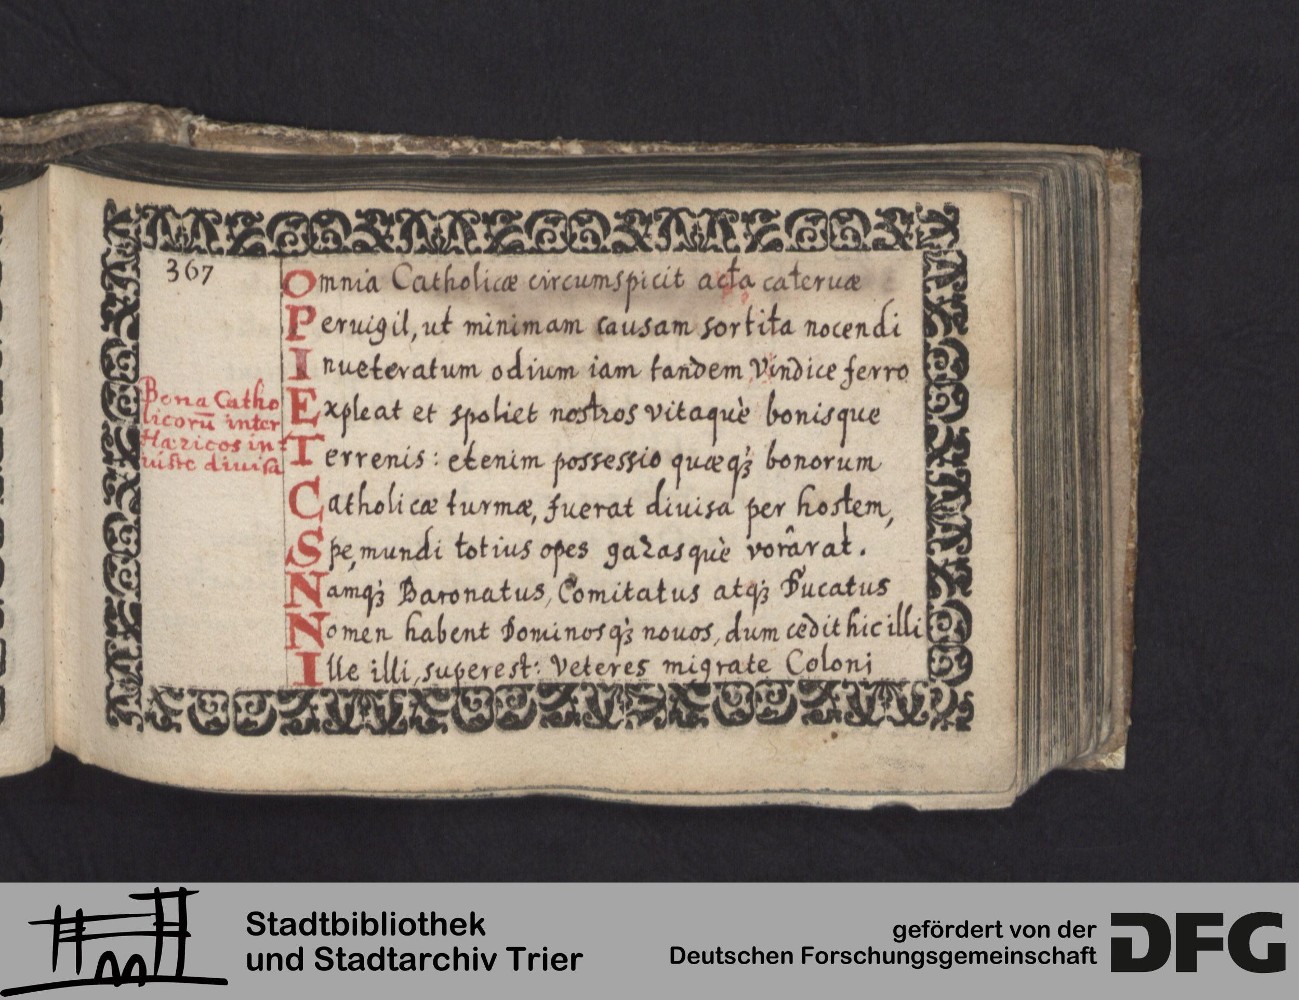 367
Omnia Catholicæ circumspicit acta cateruæ
Peruigil, ut minimam causam sortita nocendi
Inueteratum odium iam tandem Vindice ferro
Expleat et spoliet nostros vitaquè bonisque
Terrenis: etenim possessio quæqȝ bonorum
Catholicæ turmæ, fuerat diuisa per hostem,
Spe, mundi totius opes gazasquè vorârat.
Namqȝ Baronatus, Comitatus atqȝ Ducatus
Nomen habent Dominosqȝ nouos, dum cedit hic illi
Ille illi, superest: Veteres migrate Coloni
Bona Catho
licorū inter
Hæricos in
iuste diuisa
Stadtbibliothek
und Stadtarchiv Trier
gefördert von der
Deutschen Forschungsgemeinschaft
DFG